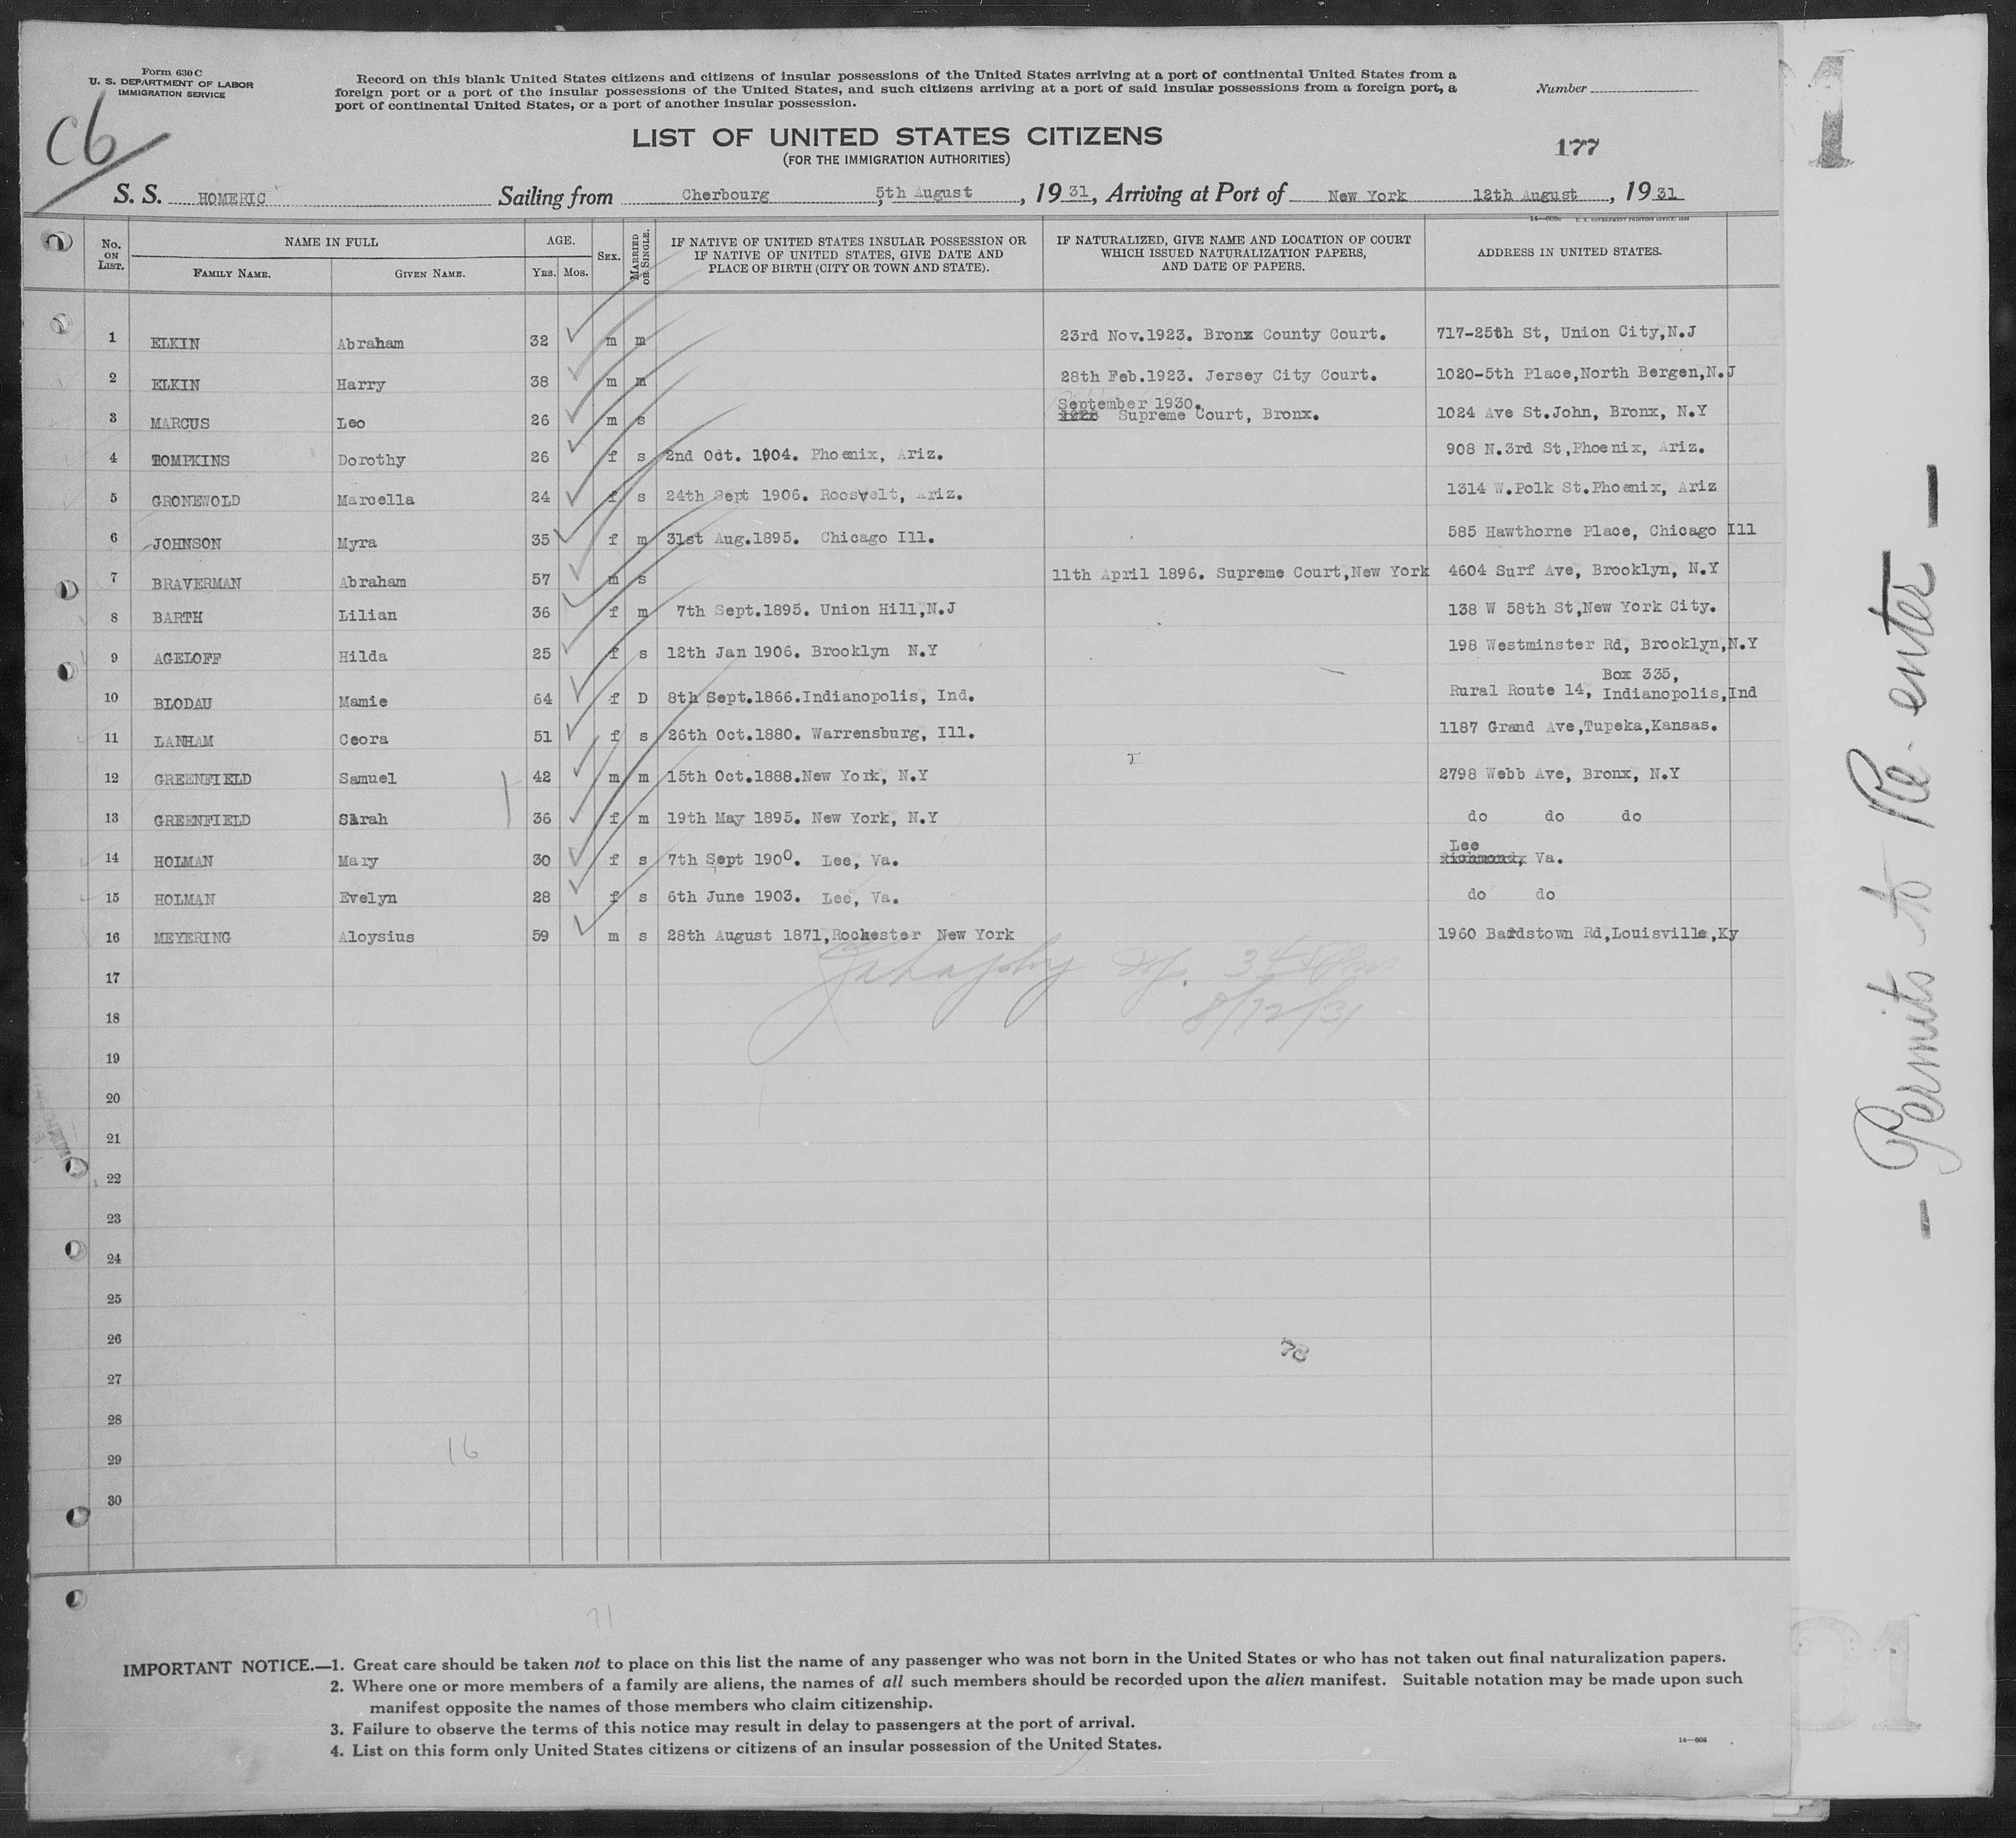 Form 630 C
U. S. DEPARTMENT OF LABOR
IMMIGRATION SERVICE
C6
Record on this blank United States citizens and citizens of insular possessions of the United States arriving at a port of continental United States from a
foreign port or a port of the insular possessions of the United States, and such citizens arriving at a port of said insular possessions from a foreign port, a
port of continental United States, or a port of another insular possession.
Number
LIST OF UNITED STATES CITIZENS
(FOR THE IMMIGRATION AUTHORITIES)
177
S. S. HOMERIC Sailing from Cherbourg, 5th August, 1931, Arriving at Port of New York 12th August, 1931
No. ON LIST. NAME IN FULL FAMILY NAME. GIVEN NAME. AGE. YRS. MOS. SEX. MARRIED OR SINGLE. IF NATIVE OF UNITED STATES INSULAR POSSESSION OR IF NATIVE OF UNITED STATES, GIVE DATE AND PLACE OF BIRTH (CITY OR TOWN AND STATE). IF NATURALIZED, GIVE NAME AND LOCATION OF COURT WHICH ISSUED NATURALIZATION PAPERS, AND DATE OF PAPERS. ADDRESS IN UNITED STATES.
1 ELKIN Abraham 32 m m 23rd Nov.1923. Bronx County Court. 717-25th St, Union City,N.J
2 ELKIN Harry 38 m m 28th Feb.1923. Jersey City Court. 1020-5th Place,North Bergen,N.J
September 1930.
3 MARCUS Leo 26 m s Supreme Court, Bronx. 1024 Ave St.John, Bronx, N.Y
4 TOMPKINS Dorothy 26 f s 2nd Oct. 1904. Phoenix, Ariz. 908 N.3rd St,Phoenix, Ariz.
5 GRONEWOLD Marcella 24 f s 24th Sept 1906. Roosvelt, Ariz. 1314 W.Polk St.Phoenix, Ariz
6 JOHNSON Myra 35 f m 31st Aug.1895. Chicago Ill. 585 Hawthorne Place, Chicago Ill
7 BRAVERMAN Abraham 57 m s 11th April 1896. Supreme Court,New York 4604 Surf Ave, Brooklyn, N.Y
8 BARTH Lilian 36 f m 7th Sept.1895. Union Hill,N.J 138 W 58th St,New York City.
9 AGELOFF Hilda 25 f s 12th Jan 1906. Brooklyn N.Y 198 Westminster Rd, Brooklyn,N.Y
Box 335,
10 BLODAU Mamie 64 f D 8th Sept.1866.Indianopolis, Ind. Rural Route 14, Indianopolis,Ind
11 LANHAM Ceora 51 f s 26th Oct.1880. Warrensburg, Ill. 1187 Grand Ave,Tupeka,Kansas.
12 GREENFIELD Samuel 42 m m 15th Oct.1888.New York, N.Y 2798 Webb Ave, Bronx, N.Y
13 GREENFIELD Sarah 36 f m 19th May 1895. New York, N.Y do do do
Lee
14 HOLMAN Mary 30 f s 7th Sept 1900. Lee, Va. Richmond, Va.
15 HOLMAN Evelyn 28 f s 6th June 1903. Lee, Va. do do
16 MEYERING Aloysius 59 m s 28th August 1871,Rochester New York 1960 Bardstown Rd,Louisville,Ky
17
8/12/31
18
19
20
21
22
23
24
25
26
78
27
28
16
29
30
IMPORTANT NOTICE.—1. Great care should be taken not to place on this list the name of any passenger who was not born in the United States or who has not taken out final naturalization papers.
2. Where one or more members of a family are aliens, the names of all such members should be recorded upon the alien manifest. Suitable notation may be made upon such
manifest opposite the names of those members who claim citizenship.
3. Failure to observe the terms of this notice may result in delay to passengers at the port of arrival.
4. List on this form only United States citizens or citizens of an insular possession of the United States.
14—608
- Permits to Re-enter -